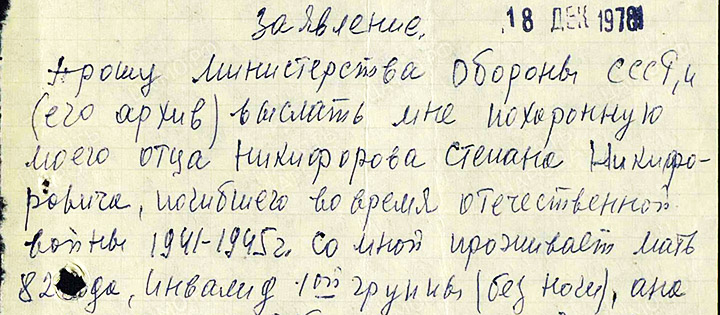 Заявление.
18 ДЕК 1978
Прошу министерства обороны СССР, и
(его архив) выслать мне похоронную
моего отца Никифорова Степана Никифо-
ровича, погибшего во время отечественной
войны 1941-1945г. Со мной проживает мать
82 года, инвалид 1ой группы (без ноги), она